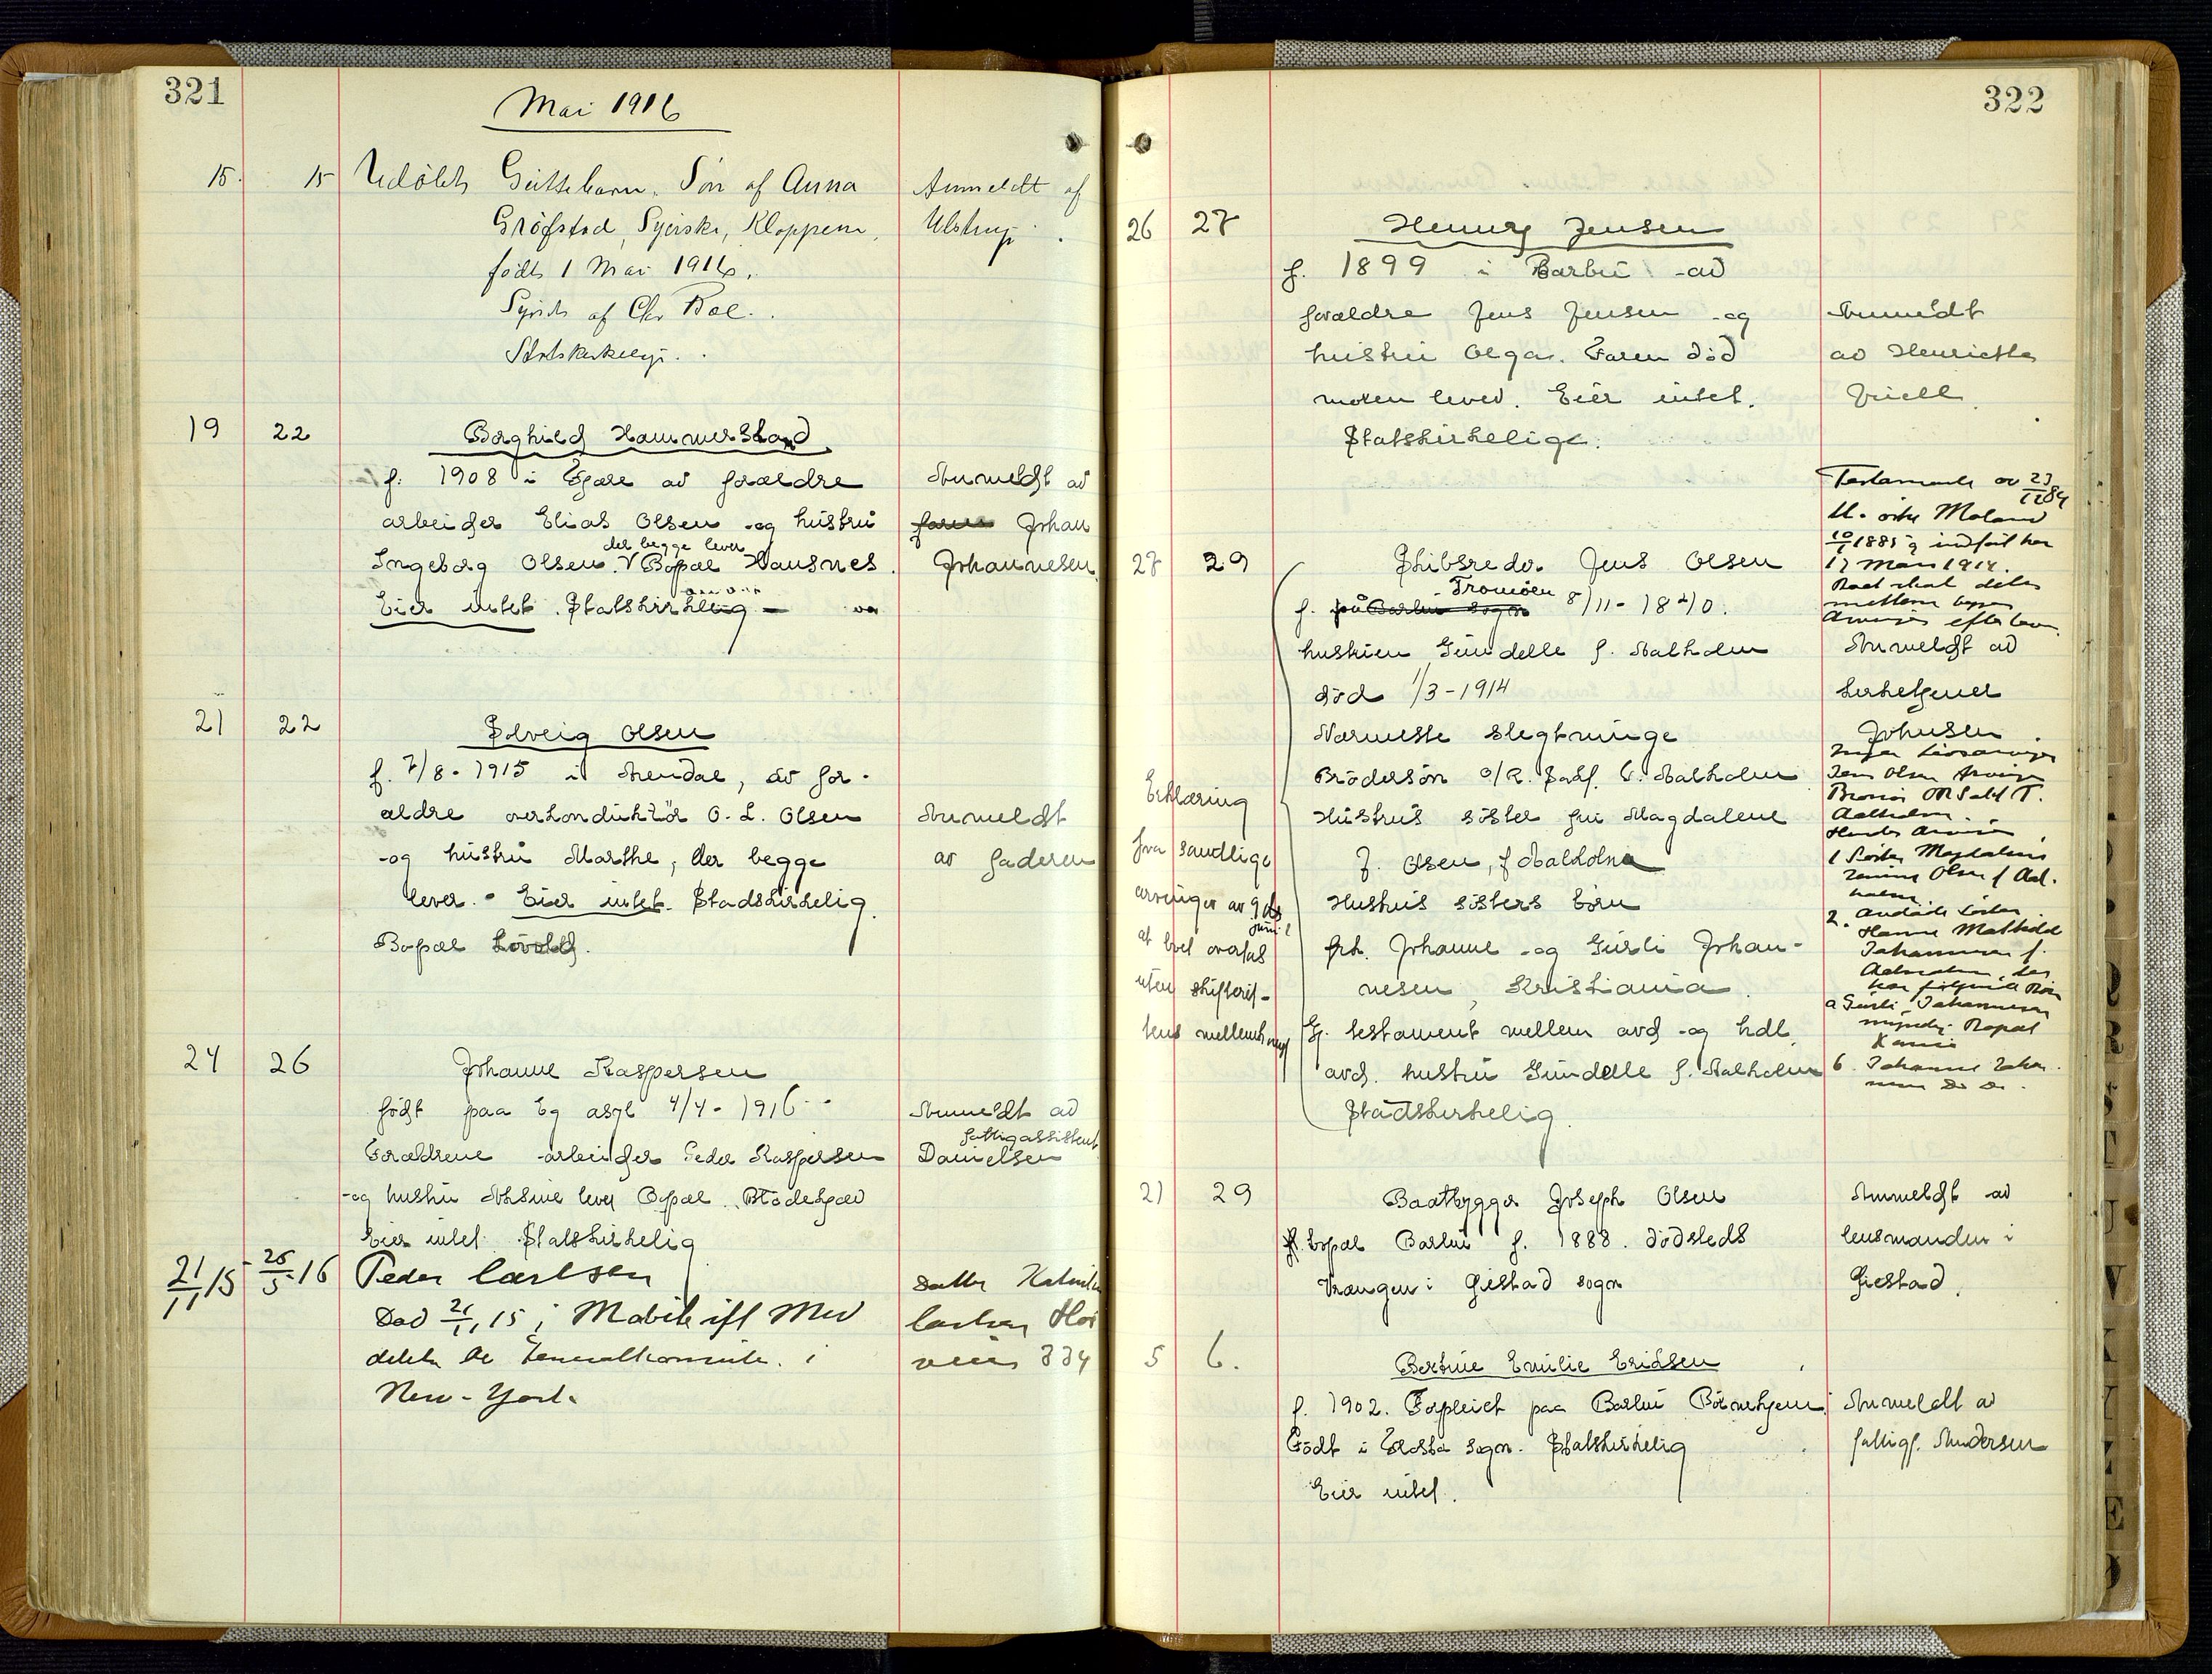 321
Mai 1916
15. 15 Udøbt Guttebarn. Søn af Anna
Grøfstad, Syerske, Kloppene,
født 1 Mai 1916.
Synet af Chr Boe.
Statskirkelig.
Anmeldt af
Ulstrup.
19 22 Borghild Hammerstad
f. 1908 i Fjære av forældre
arbeider Elias Olsen og hustru
der begge lever
Ingeborg Olsen. V Bopæl Hausnes.
Eier intet. Statskirkelig
Anmeldt av
Johan
Johannesen.
21 22 Solveig Olsen
f. 7/8 - 1915 i Arendal, av for-
ældre overkonduktør O. L. Olsen
og hustru Marthe, der begge
lever. - Eier intet. Stadskirkelig.
Bopæl Løvold.
Anmeldt
av faderen
24 26 Johanne Kaspersen
født paa Eg asyl 4/4 - 1916
Forældrene arbeider Peder Kaspersen
og hustru lever Bopæl Blødekjær
Eier intet. Statskirkelig
Anmeldt av
fattigassistent
Danielsen
21/11 15 26/5 16 Peder Carlsen
Død 21/11 15 i Mobile ifl Med
delelse de Generalkonsulen i
New-York.
Datter
Carlsen
334
322
26 27 Henry Jensen
f. 1899 i Barbu av
forældre Jens Jensen og
hustru Olga. Faren død
moren lever. Eier intet.
Statskirkelige.
Anmeldt
av Henriette
Juell.
27 29 Skibsreder Jens Olsen
Tromøen
f. på Barbu sogn 8/11 - 1840.
hustruen Gundelle f. Aalholm
død 1/3 - 1914
Nærmeste slegtninge
Brødersøn O/R. Sahf. T. Aalholm
Hustrus søster fru Magdalene
J. Olsen, f Aalholm
Hustrus søsters børn
frk. Johanne og Gurli Johan-
nesen, Kristiania.
Gj. testament mellem avd og hdl.
avd. hustru Gundelle f. Aalholm
Stadskirkelig.
Erklæring
fra samtlige
arvinger av 9 ds
juni
at boet overtas
uten skifteret-
tens mellemkomst
Testamente av 23
Østre Moland
1885 indført her
17 Mars 1914.
skal deles
mellem begges
Arvinger efter loven.
Anmeldt av
kirketjener
Johnsen.
Jens Olsen Arvinger
Aalholm.
1 Søster Magdalene
Olsen f Aal-
holm.
2. Søster
Hanne Mathilde
Johannesen f.
Aalholm, der
har følgende Børn
a Gurli Johannesen
myndig Bopæl
Kania
b. Johanne Johan
nesen do do.
21 29 Baatbygger Joseph Olsen
bopæl Barbu f. 1888. dødsteds
Vrangen i Gjestad sogn
Anmeldt av
lensmanden i
Gjestad.
5 6. Bertine Emilie Eriksen
f. 1902. Forpleiet paa Barbu Børnehjem.
Født i Flosta sogn. Statskirkelig
Eier intet.
Anmeldt av
fattigf. Andersen